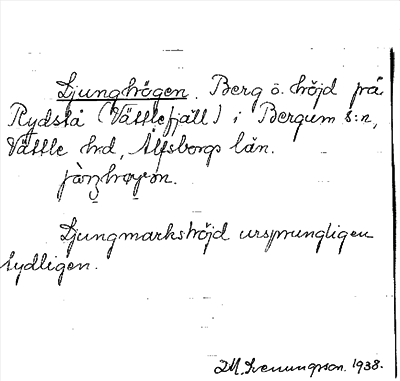 Ljunghögen. Berg o. höjd på
Rydslä (Vättlefjäll) i Bergum s:n,
Vättle hrd, Älfsborgs län.
Ljungmarkshöjd ursprungligen
tydligen.
D.M. Svenungsson. 1938.